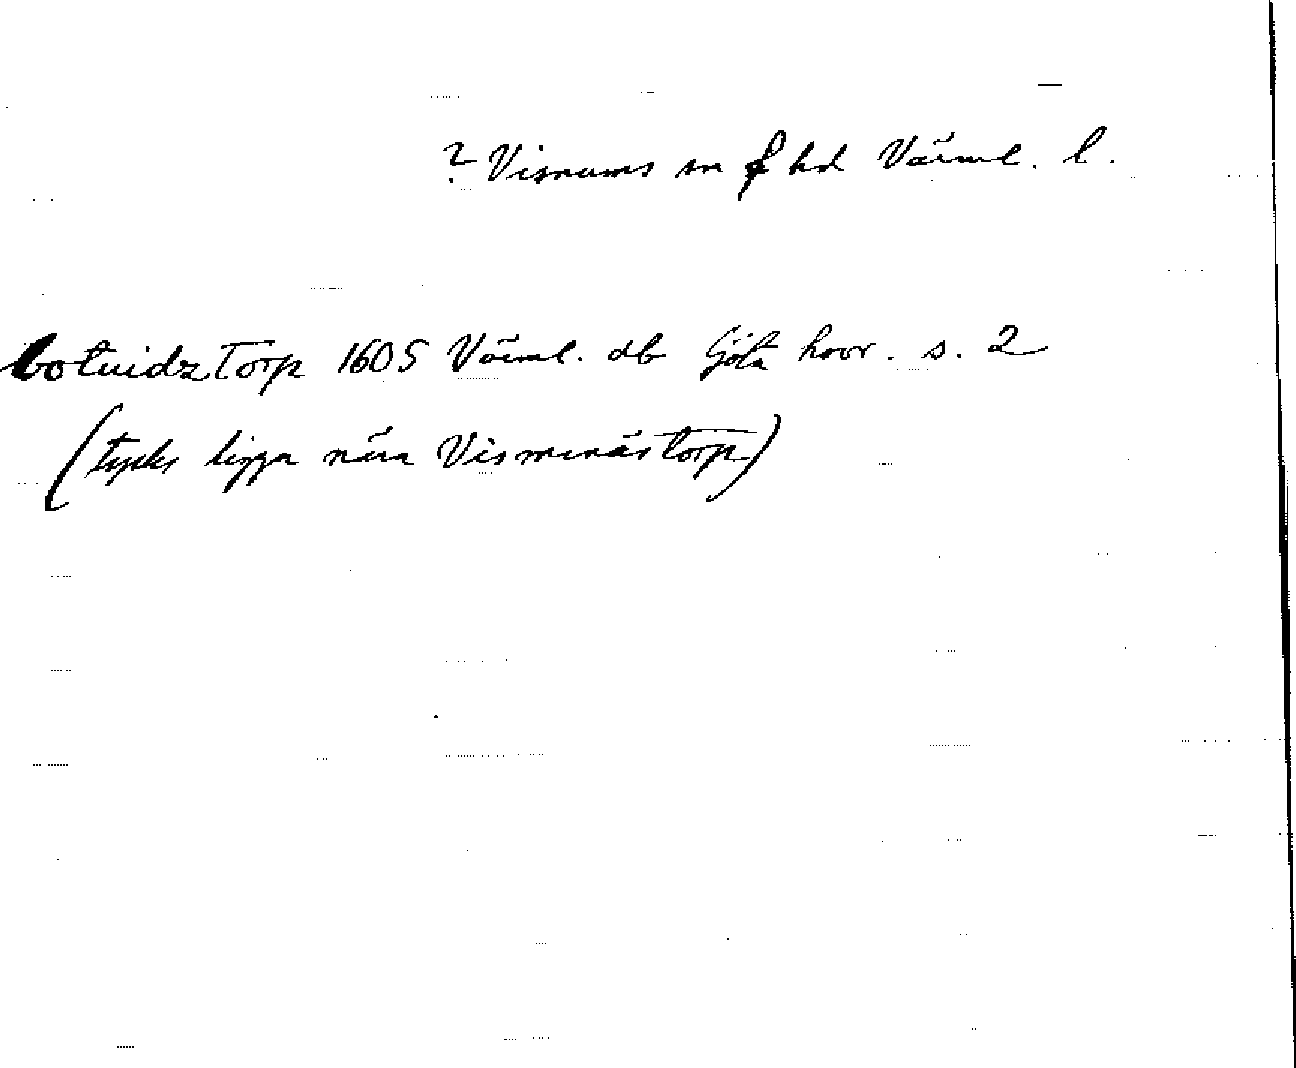 ? Visnums sn & hd Värml. l.
botuidz torp 1605 Värml. db Göta hovr. s. 2
(tycks ligga nära Vismenäs torp)